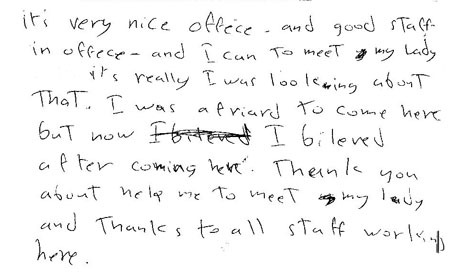 it's very nice offece. and good staff
in offece - and I can to meet my lady
it's really I was looking about
That. I was afriard to come here
but now I bileved
after coming here. Thank you
about help me to meet my lady
and Thanks to all staff working
here.